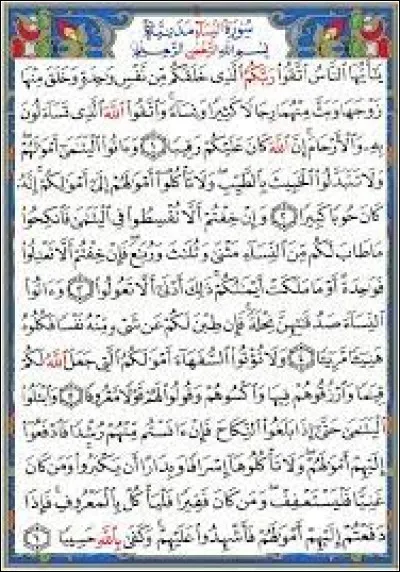 سُورَةُ النِّسَاءِ مَدَنِيَّة
بِسْمِ اللَّهِ الرَّحْمَٰنِ الرَّحِيمِ
يَٰٓأَيُّهَا ٱلنَّاسُ ٱتَّقُوا۟ رَبَّكُمُ ٱلَّذِى خَلَقَكُم مِّن نَّفْسٍ وَٰحِدَةٍ وَخَلَقَ مِنْهَا
زَوْجَهَا وَبَثَّ مِنْهُمَا رِجَالًا كَثِيرًا وَنِسَآءً ۚ وَٱتَّقُوا۟ ٱللَّهَ ٱلَّذِى تَسَآءَلُونَ
بِهِۦ وَٱلْأَرْحَامَ ۚ إِنَّ ٱللَّهَ كَانَ عَلَيْكُمْ رَقِيبًا ١ وَءَاتُوا۟ ٱلْيَتَٰمَىٰٓ أَمْوَٰلَهُمْ ۖ
وَلَا تَتَبَدَّلُوا۟ ٱلْخَبِيثَ بِٱلطَّيِّبِ ۖ وَلَا تَأْكُلُوٓا۟ أَمْوَٰلَهُمْ إِلَىٰٓ أَمْوَٰلِكُمْ ۚ إِنَّهُۥ
كَانَ حُوبًا كَبِيرًا ٢ وَإِنْ خِفْتُمْ أَلَّا تُقْسِطُوا۟ فِى ٱلْيَتَٰمَىٰ فَٱنكِحُوا۟
مَا طَابَ لَكُم مِّنَ ٱلنِّسَآءِ مَثْنَىٰ وَثُلَٰثَ وَرُبَٰعَ ۖ فَإِنْ خِفْتُمْ أَلَّا تَعْدِلُوا۟
فَوَٰحِدَةً أَوْ مَا مَلَكَتْ أَيْمَٰنُكُمْ ۚ ذَٰلِكَ أَدْنَىٰٓ أَلَّا تَعُولُوا۟ ٣ وَءَاتُوا۟
ٱلنِّسَآءَ صَدُقَٰتِهِنَّ نِحْلَةً ۚ فَإِن طِبْنَ لَكُمْ عَن شَىْءٍ مِّنْهُ نَفْسًا فَكُلُوهُ
هَنِيٓـًٔا مَّرِيٓـًٔا ٤ وَلَا تُؤْتُوا۟ ٱلسُّفَهَآءَ أَمْوَٰلَكُمُ ٱلَّتِى جَعَلَ ٱللَّهُ لَكُمْ
قِيَٰمًا وَٱرْزُقُوهُمْ فِيهَا وَٱكْسُوهُمْ وَقُولُوا۟ لَهُمْ قَوْلًا مَّعْرُوفًا ٥ وَٱبْتَلُوا۟
ٱلْيَتَٰمَىٰ حَتَّىٰٓ إِذَا بَلَغُوا۟ ٱلنِّكَاحَ فَإِنْ ءَانَسْتُم مِّنْهُمْ رُشْدًا فَٱدْفَعُوٓا۟
إِلَيْهِمْ أَمْوَٰلَهُمْ ۖ وَلَا تَأْكُلُوهَآ إِسْرَافًا وَبِدَارًا أَن يَكْبَرُوا۟ ۚ وَمَن كَانَ
غَنِيًّا فَلْيَسْتَعْفِفْ ۖ وَمَن كَانَ فَقِيرًا فَلْيَأْكُلْ بِٱلْمَعْرُوفِ ۚ فَإِذَا
دَفَعْتُمْ إِلَيْهِمْ أَمْوَٰلَهُمْ فَأَشْهِدُوا۟ عَلَيْهِمْ ۚ وَكَفَىٰ بِٱللَّهِ حَسِيبًا ٦